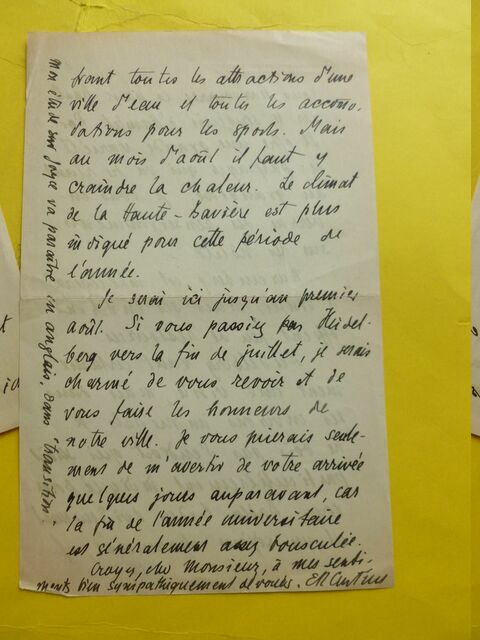 frant toutes les attractions d'une
ville d'eau et toutes les accomo-
dations pour les sports. Mais
au mois d'août il faut y
craindre la chaleur. Le climat
de la Haute-Bavière est plus
indiqué pour cette période de
l'année.
Je serai ici jusqu'au premier
août. Si vous passiez par Heidel-
berg vers la fin de juillet, je serais
charmé de vous revoir et de
vous faire les honneurs de
notre ville. Je vous prierais seule-
ment de m'avertir de votre arrivée
quelques jours auparavant, car
la fin de l'année universitaire
est généralement assez bousculée.
Croyez, cher Monsieur, à mes senti-
ments bien sympathiquement dévoués. ER Curtius
Mon étude sur Joyce va paraître en anglais, dans "transition".